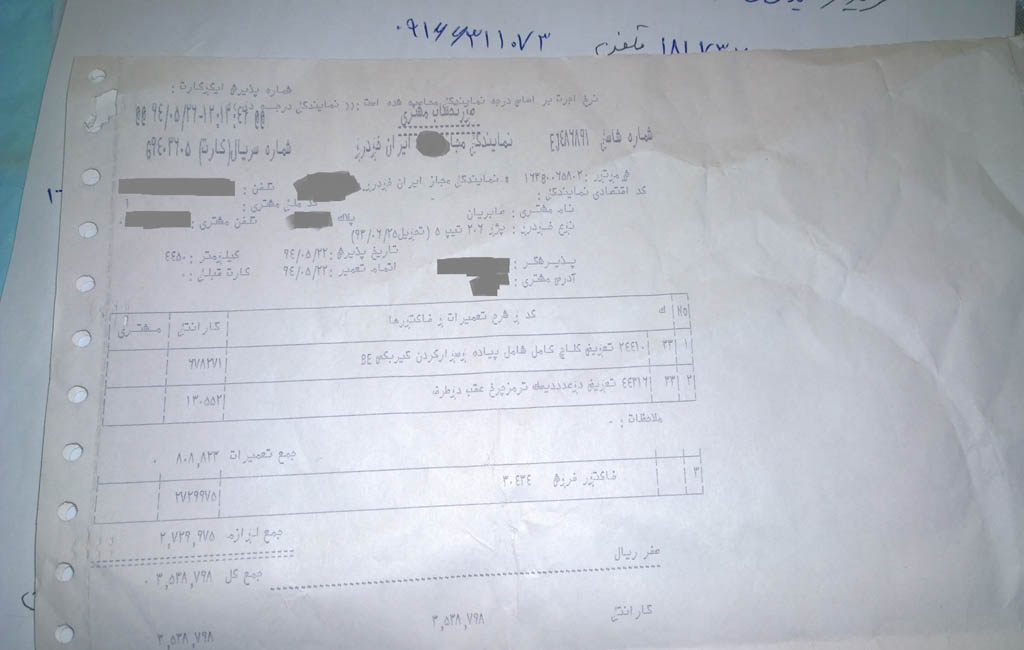 تلفن ۰۹۱۴۴۳۱۱۰۷۳
شماره پذیرش ایزوکارت :
نرخ اجرت بر اساس درجه نمایندگی محاسبه شده است
صورتحساب مشتری ۹۴/۰۵/۲۶-۱۲:۱۳:۴۶
شماره شاسی نمایندگی مجاز ایران خودرو شماره سریال(کارت)
ش موتور : نمایندگی مجاز ایران خودرو تلفن :
کد اقتصادی نمایندگی : کد ملی مشتری : ۱
نام مشتری : صابریان پلاک تلفن مشتری :
نوع خودرو : پژو ۲۰۶ تیپ ۵ (تحویل ۹۳/۰۶/۲۵)
تاریخ پذیرش : ۹۴/۰۵/۲۲ کیلومتر : ۴۴۵۰
پذیرشگر : اتمام تعمیر : ۹۴/۰۵/۲۲ کارت قبلی : ۰
آدرس مشتری :
No ک کد و شرح تعمیرات و فاکتورها گارانتی مشتری
۱ ۳۳ ۲۴۴۱۰ تعویض کلاچ کامل شامل پیاده وسوارکردن گیربکس BE ۶۷۸۲۷۱
۲ ۳۳ ۴۴۳۱۶ تعویض دوعدددیسک ترمزچرخ عقب دوطرف ۱۳۰۵۵۲
ملاحظات : -
جمع تعمیرات ۸۰۸,۸۲۳ ۰
۳ فاکتور فروش ۳۰۴۳۴ ۲۷۲۹۹۷۵
جمع لوازم ۲,۷۲۹,۹۷۵
صفر ریال جمع کل ۳,۵۳۸,۷۹۸ ۰
گارانتی ۳,۵۳۸,۷۹۸ ۳,۵۳۸,۷۹۸